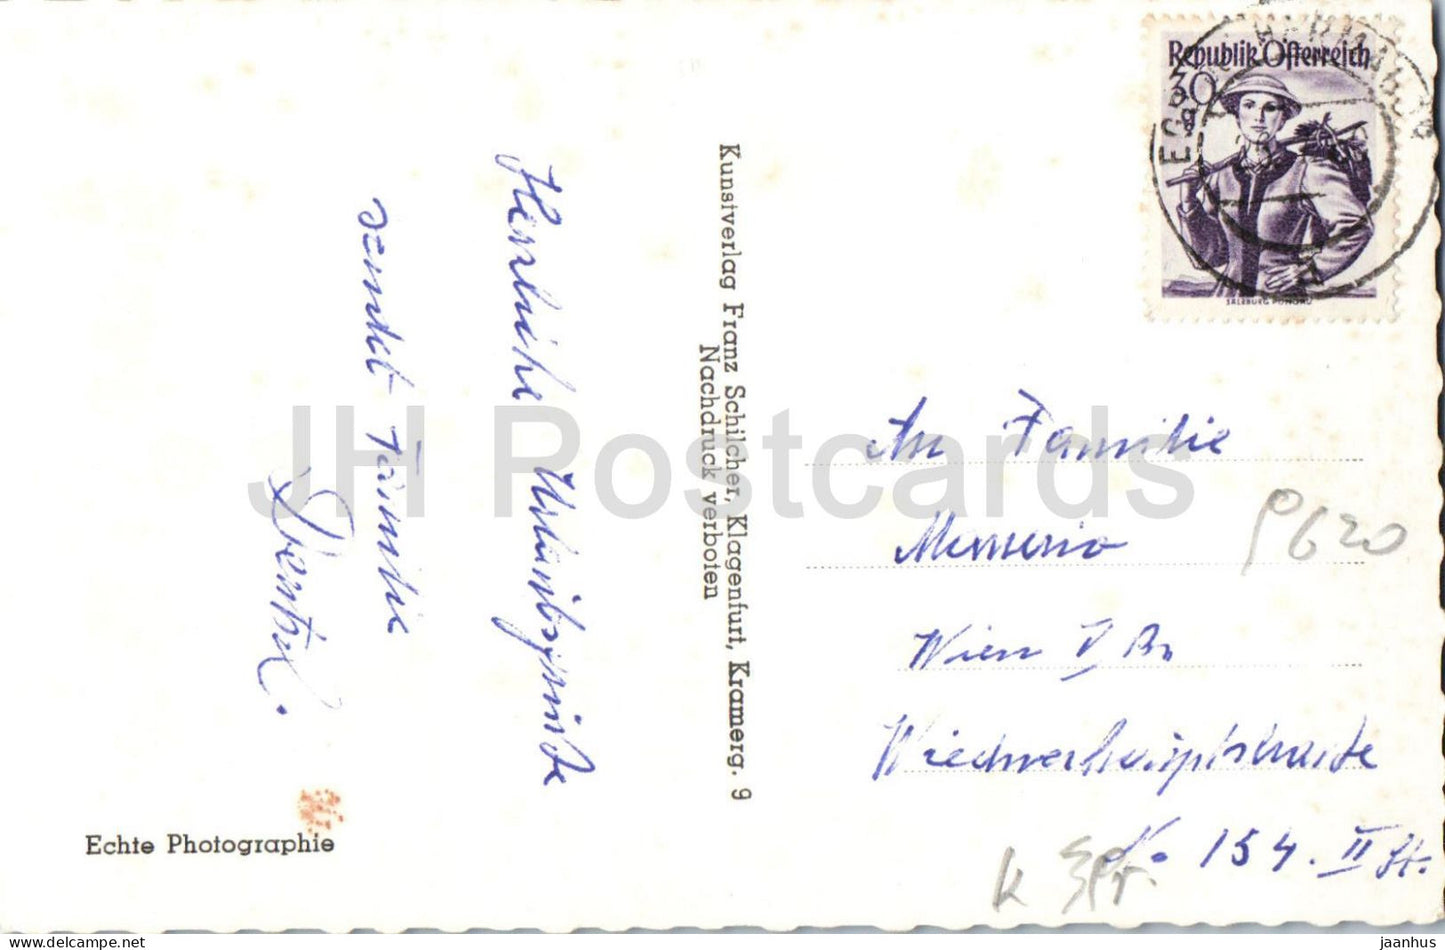 Herzliche Urlaubsgrüße
sendet Familie
Kunstverlag Franz Schilcher, Klagenfurt, Kramerg. 9
Nachdruck verboten
Echte Photographie
Republik Österreich
30
g
SALZBURG PONGAU
An Familie
Wien V Bz
Wiednerhauptstraße
No 154. II St.
9620
K
JH Postcards
jaanhus
www.delcampe.net